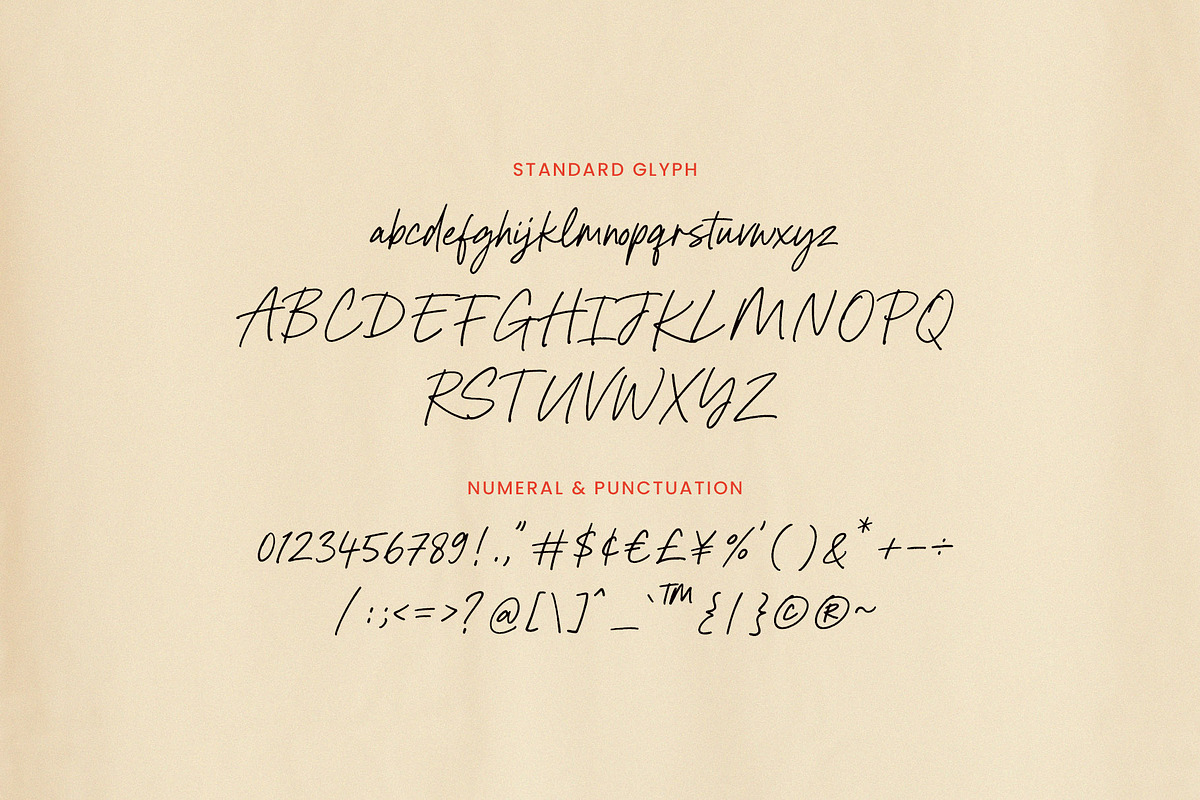 STANDARD GLYPH
abcdefghijklmnopqrstuvwxyz
ABCDEFGHIJKLMNOPQ
RSTUVWXYZ
NUMERAL & PUNCTUATION
0123456789!.,"#$¢€£¥%'()&*+-÷
/:;<=>?@[\]^_`™{|}©®~